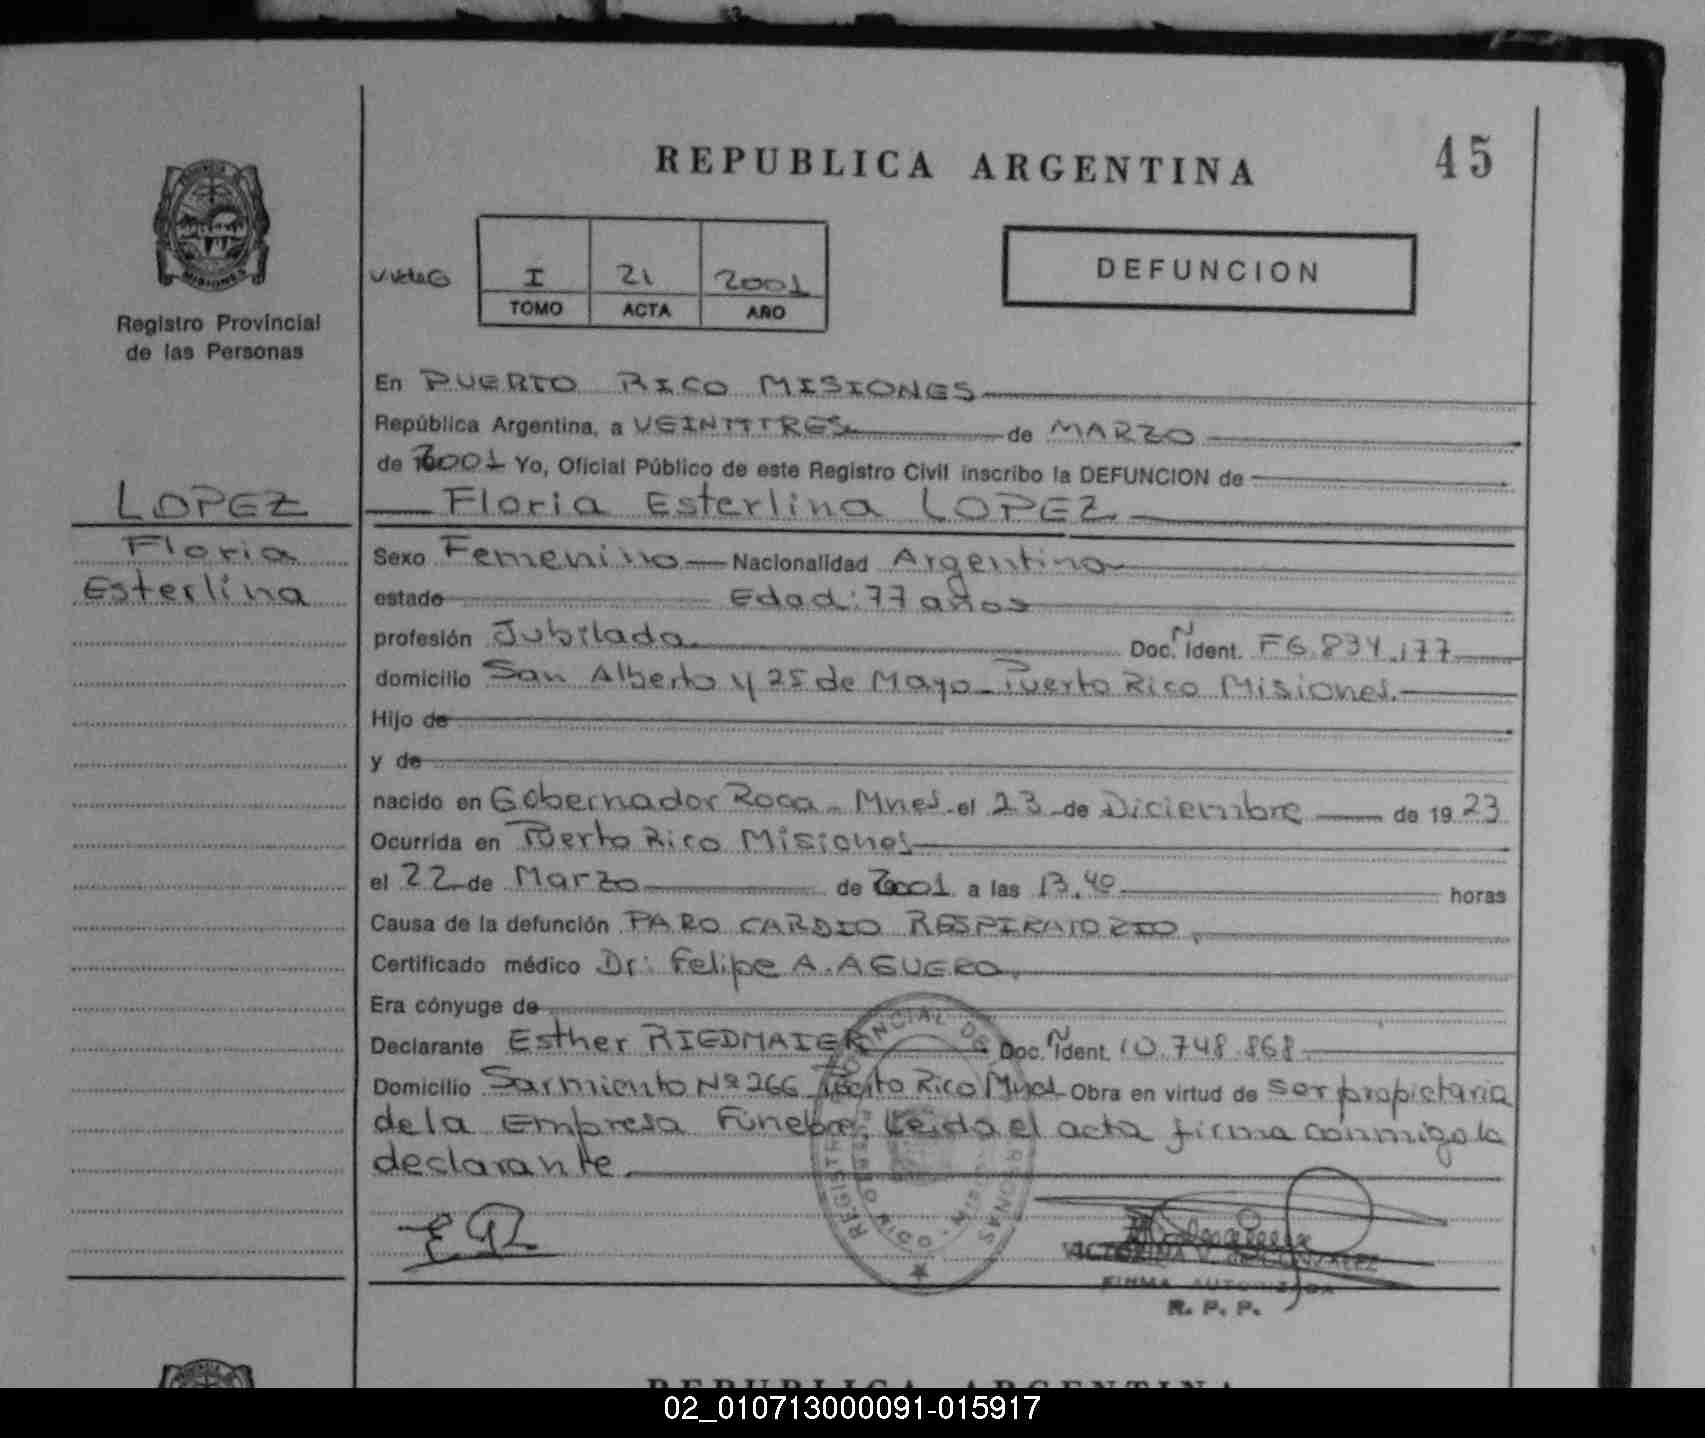 REPUBLICA ARGENTINA
45
I 21 2001
TOMO ACTA AÑO
DEFUNCION
MISIONES
Registro Provincial
de las Personas
LOPEZ
Floria
Esterlina
En PUERTO RICO MISIONES
República Argentina, a VEINTITRES de MARZO
de 2001 Yo, Oficial Público de este Registro Civil inscribo la DEFUNCION de
Floria Esterlina LOPEZ
Sexo Femenino Nacionalidad Argentina
estado Edad: 77 años
profesión Jubilada Doc. Ident. F6.834.177
domicilio San Alberto y 25 de Mayo - Puerto Rico Misiones.
Hijo de
y de
nacido en Gobernador Roca - Mnes. el 23 de Diciembre de 1923
Ocurrida en Puerto Rico Misiones
el 22 de Marzo de 2001 a las 13.40 horas
Causa de la defunción PARO CARDIO RESPIRATORIO,
Certificado médico Dr: Felipe A. AGUERO,
Era cónyuge de
Declarante Esther RIEDMAIER Doc. Ident. 10.748.868
Domicilio Sarmiento Nº 266 Puerto Rico Mnes Obra en virtud de ser propietaria
de la Empresa Fúnebre. Leida el acta firma conmigo la
declarante
VICTORINA V. DE GONZALEZ
FIRMA AUTORIZADA
R. P. P.
REPUBLICA ARGENTINA
02_010713000091-015917